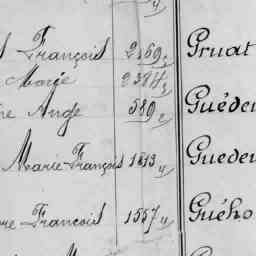 François 2169 Pruat
Marie 2384
Ange 589 Guéde
Marie-François 1813 Guede
Francois 1557 Guého